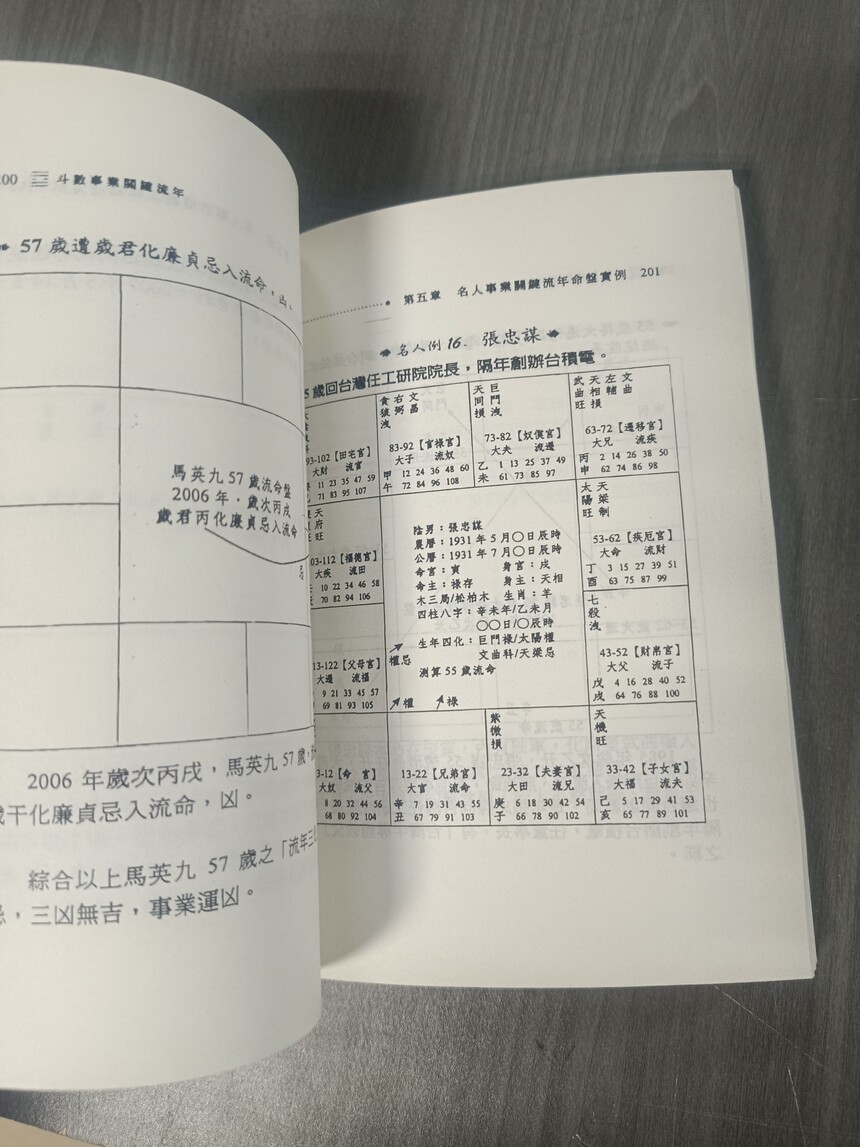 斗數事業關鍵流年
57歲遭歲君化廉貞忌入流命，凶。
馬英九57歲流命盤
2006年，歲次丙戌
歲君丙化廉貞忌入流命
忌
2006年歲次丙戌，馬英九57歲，
歲干化廉貞忌入流命，凶。
綜合以上馬英九 57 歲之「流年三
忌，三凶無吉，事業運凶。
第五章 名人事業關鍵流年命盤實例 201
名人例16. 張忠謀
5歲回台灣任工研院院長，隔年創辦台積電。
93-102【田宅宮】
大財 流官
11 23 35 47 59
71 83 95 107
貪右文
狼弼昌
洩
83-92【官祿宮】
大子 流奴
甲 12 24 36 48 60
午 72 84 96 108
天巨
同門
損洩
73-82【奴僕宮】
大夫 流遷
乙 1 13 25 37 49
未 61 73 85 97
武天左文
曲相輔曲
旺損
63-72【遷移宮】
大兄 流疾
丙 2 14 26 38 50
申 62 74 86 98
天
府
旺
03-112【福德宮】
大疾 流田
10 22 34 46 58
70 82 94 106
陰男：張忠謀
農曆：1931年5月〇日辰時
公曆：1931年7月〇日辰時
命宮：寅 身宮：戌
命主：祿存 身主：天相
木三局/松柏木 生肖：羊
四柱八字：辛未年/乙未月
〇〇日/〇辰時
生年四化：巨門祿/太陽權
文曲科/天梁忌
測算55歲流命
權忌
權 祿
太天
陽梁
旺制
53-62【疾厄宮】
大命 流財
丁 3 15 27 39 51
酉 63 75 87 99
13-122【父母宮】
大遷 流福
9 21 33 45 57
69 81 93 105
七
殺
洩
43-52【財帛宮】
大父 流子
戊 4 16 28 40 52
戌 64 76 88 100
3-12【命 宮】
大奴 流父
8 20 32 44 56
68 80 92 104
13-22【兄弟宮】
大官 流命
辛 7 19 31 43 55
丑 67 79 91 103
紫
微
損
23-32【夫妻宮】
大田 流兄
庚 6 18 30 42 54
子 66 78 90 102
天
機
旺
33-42【子女宮】
大福 流夫
己 5 17 29 41 53
亥 65 77 89 101